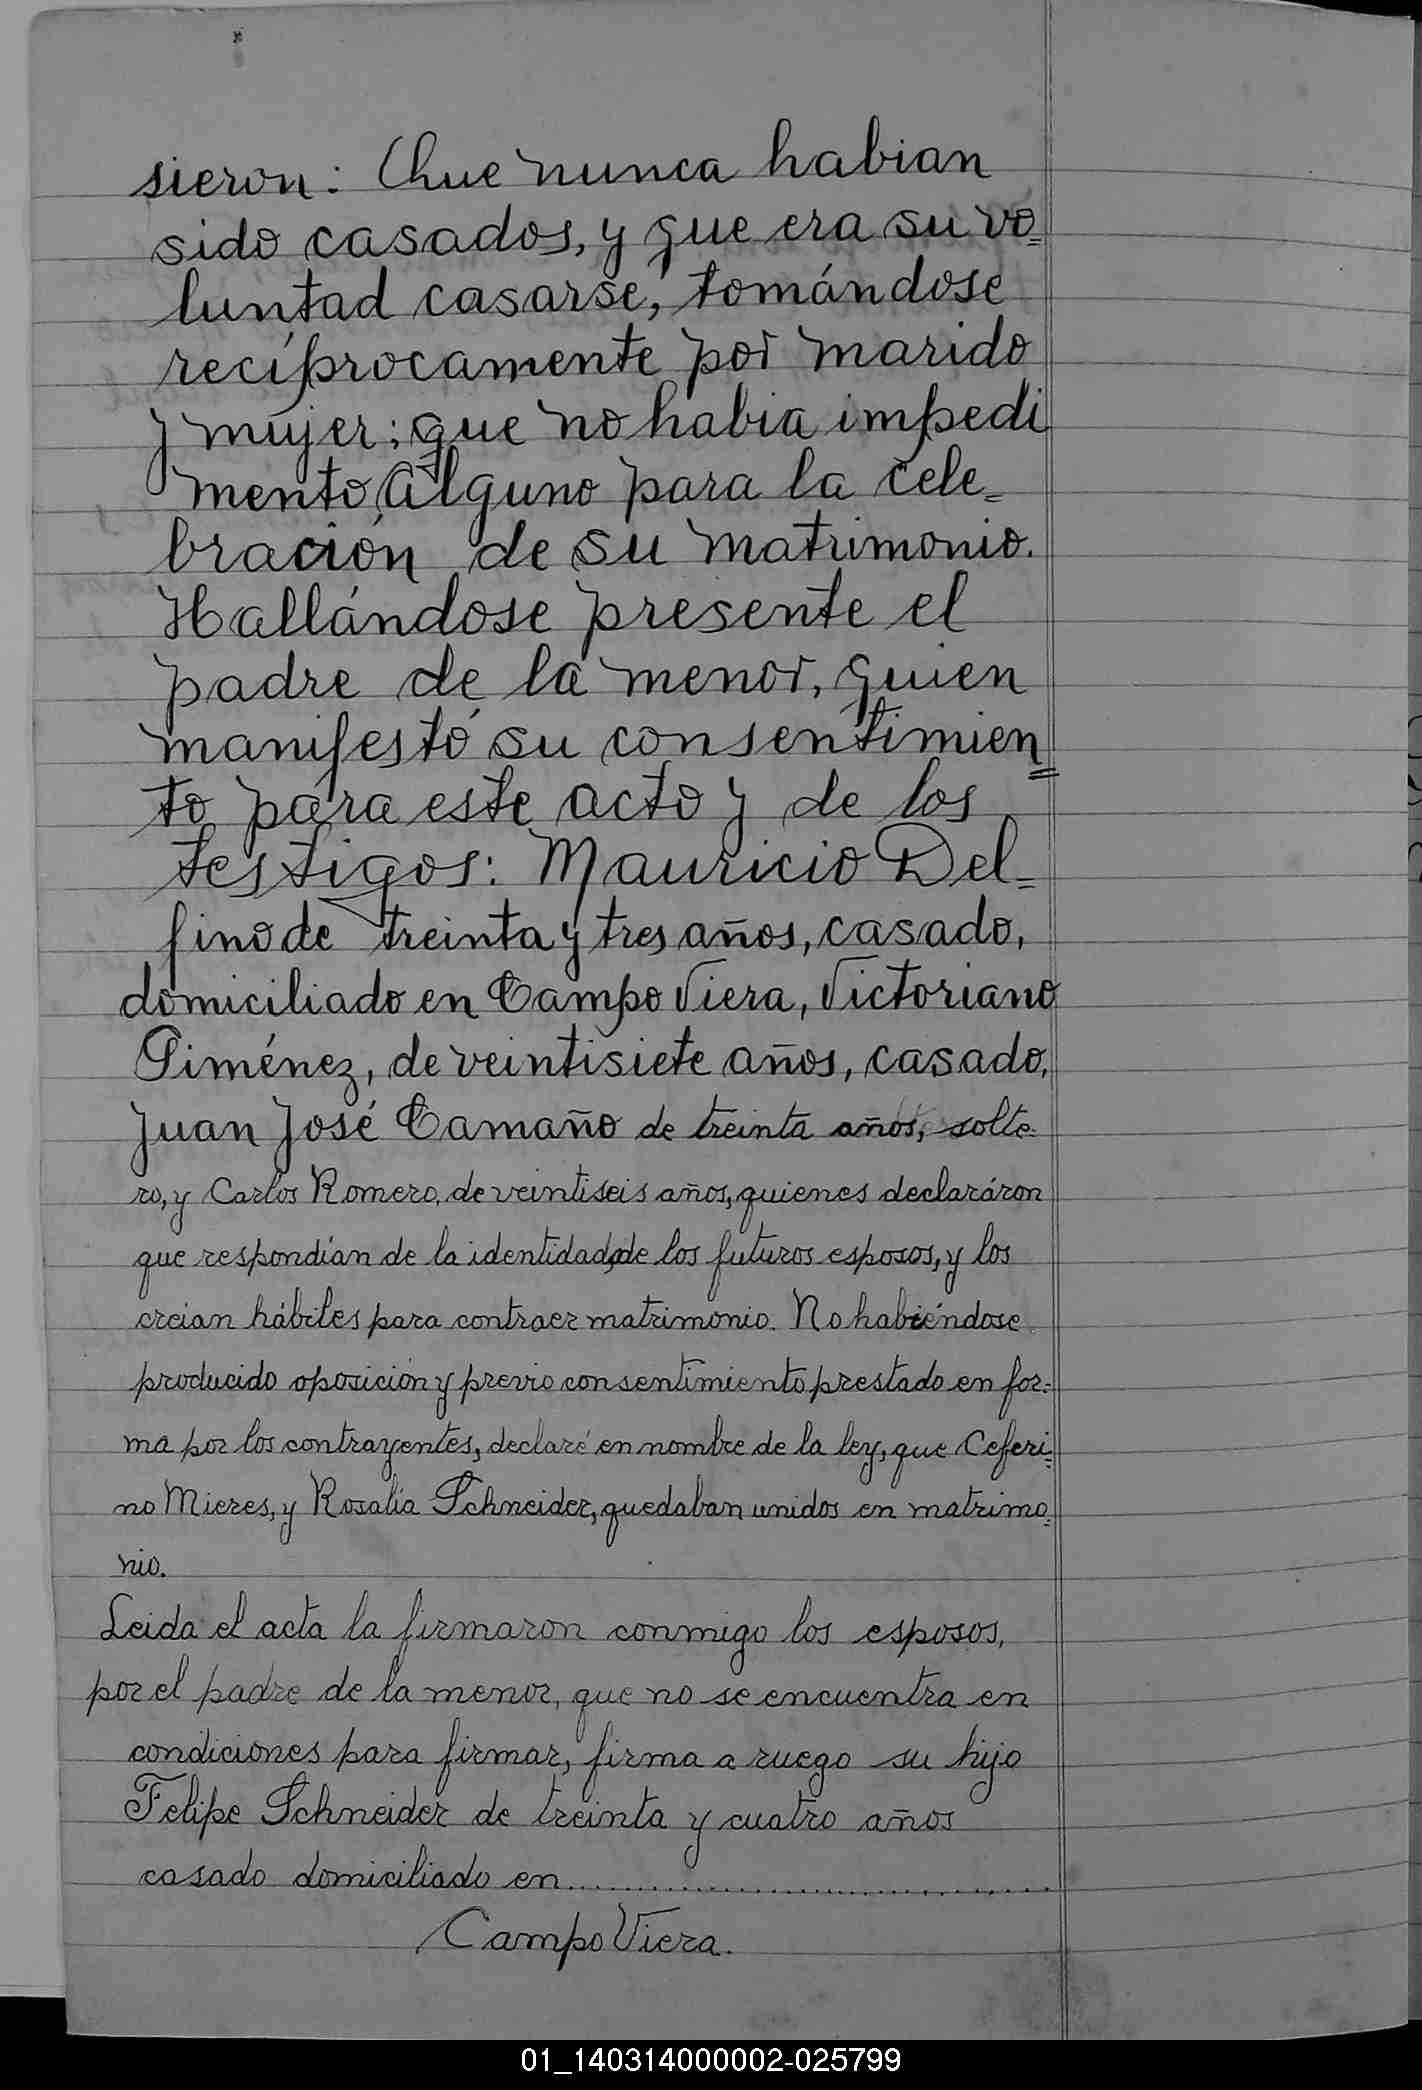 sieron: Que nunca habian
sido casados, y que era su vo=
luntad casarse, tomándose
recíprocamente por marido
y mujer; que no habia impedi
mento alguno para la cele=
bración de su matrimonio.
Hallándose presente el
padre de la menor, quien
manifestó su consentimien=
to para este acto y de los
testigos: Mauricio Del=
fino de treinta y tres años, casado,
domiciliado en Campo Viera, Victoriano
Giménez, de veintisiete años, casado,
Juan José Camaño de treinta años, solte=
ro, y Carlos Romero, de veintiseis años, quienes declaráron
que respondían de la identidad, de los futuros esposos, y los
creian hábiles para contraer matrimonio. No habiéndose
producido oposición y previo consentimiento prestado en for=
ma por los contrayentes, declaré en nombre de la ley, que Ceferi=
no Mieres, y Rosalía Schneider, quedaban unidos en matrimo=
nio.
Leida el acta la firmaron conmigo los esposos,
por el padre de la menor, que no se encuentra en
condiciones para firmar, firma a ruego su hijo
Felipe Schneider de treinta y cuatro años
casado domiciliado en..............................
Campo Viera.
01_140314000002-025799